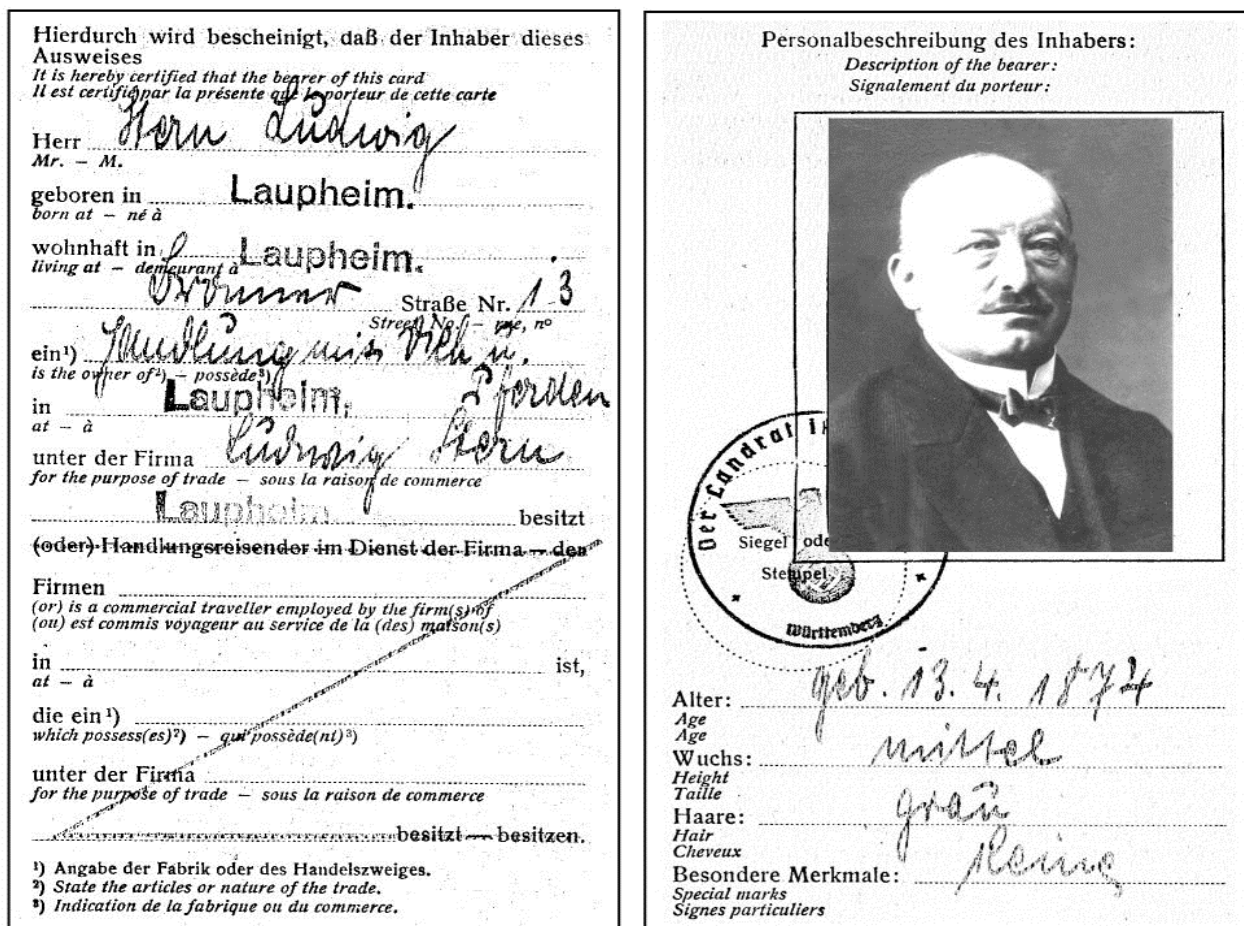 Hierdurch wird bescheinigt, daß der Inhaber dieses
Ausweises
It is hereby certified that the bearer of this card
Il est certifié par la présente que le porteur de cette carte
Herr Stern Ludwig
Mr. – M.
geboren in Laupheim.
born at – né à
wohnhaft in Laupheim.
living at – demeurant à
Straße Nr. 13
Street No. – rue, nº
ein¹) Handlung mit Vieh u.
is the owner of²) – possède³)
Pferden
in Laupheim.
at – à
unter der Firma Ludwig Stern
for the purpose of trade – sous la raison de commerce
Laupheim besitzt
(oder) Handlungsreisender im Dienst der Firma – der
Firmen
(or) is a commercial traveller employed by the firm(s) of
(ou) est commis voyageur au service de la (des) maison(s)
in ist,
at – à
die ein¹)
which possess(es)²) – qui possède(nt)³)
unter der Firma
for the purpose of trade – sous la raison de commerce
besitzt – besitzen.
¹) Angabe der Fabrik oder des Handelszweiges.
²) State the articles or nature of the trade.
³) Indication de la fabrique ou du commerce.
Personalbeschreibung des Inhabers:
Description of the bearer:
Signalement du porteur:
Der Landrat
Siegel
Stempel
Württemberg
Alter: geb. 13. 4. 1874
Age
Age
Wuchs: mittel
Height
Taille
Haare: grau
Hair
Cheveux
Besondere Merkmale: keine
Special marks
Signes particuliers